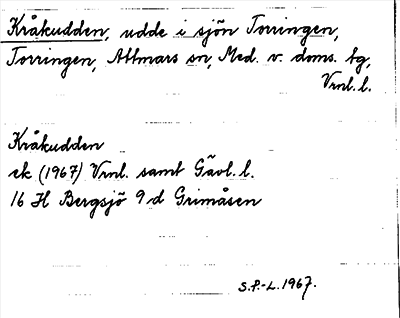 Kråkudden, udde i sjön Torringen,
Torringen, Attmars sn, Med. v. doms. tg,
Vrnl. l.
Kråkudden
ek (1967) Vrnl. samt Gävl. l.
16 H Bergsjö 9 d Grimåsen
S.P.-L. 1967.